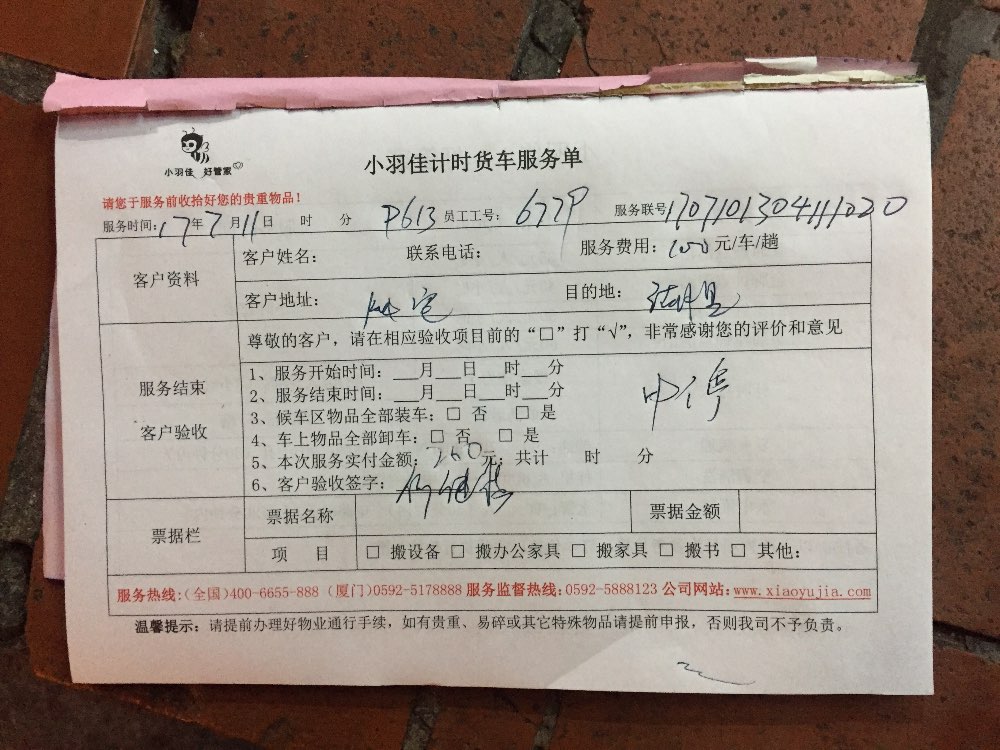 小羽佳 好管家
小羽佳计时货车服务单
请您于服务前收拾好您的贵重物品！
服务时间: 17年7月11日 时 分 P613 员工工号: 677P 服务联号1707101304111020
客户资料
客户姓名: 联系电话: 服务费用: 100元/车/趟
客户地址: 目的地:
尊敬的客户，请在相应验收项目前的“□”打“√”，非常感谢您的评价和意见
服务结束
客户验收
1、服务开始时间: ___月___日___时___分
2、服务结束时间: ___月___日___时___分
3、候车区物品全部装车: □ 否 □ 是
4、车上物品全部卸车: □ 否 □ 是
5、本次服务实付金额: 260元; 共计 时 分
6、客户验收签字:
中停
票据栏
票据名称 票据金额
项 目 □ 搬设备 □ 搬办公家具 □ 搬家具 □ 搬书 □ 其他:
服务热线:(全国)400-6655-888 (厦门)0592-5178888 服务监督热线:0592-5888123 公司网站:www.xiaoyujia.com
温馨提示: 请提前办理好物业通行手续，如有贵重、易碎或其它特殊物品请提前申报，否则我司不予负责。